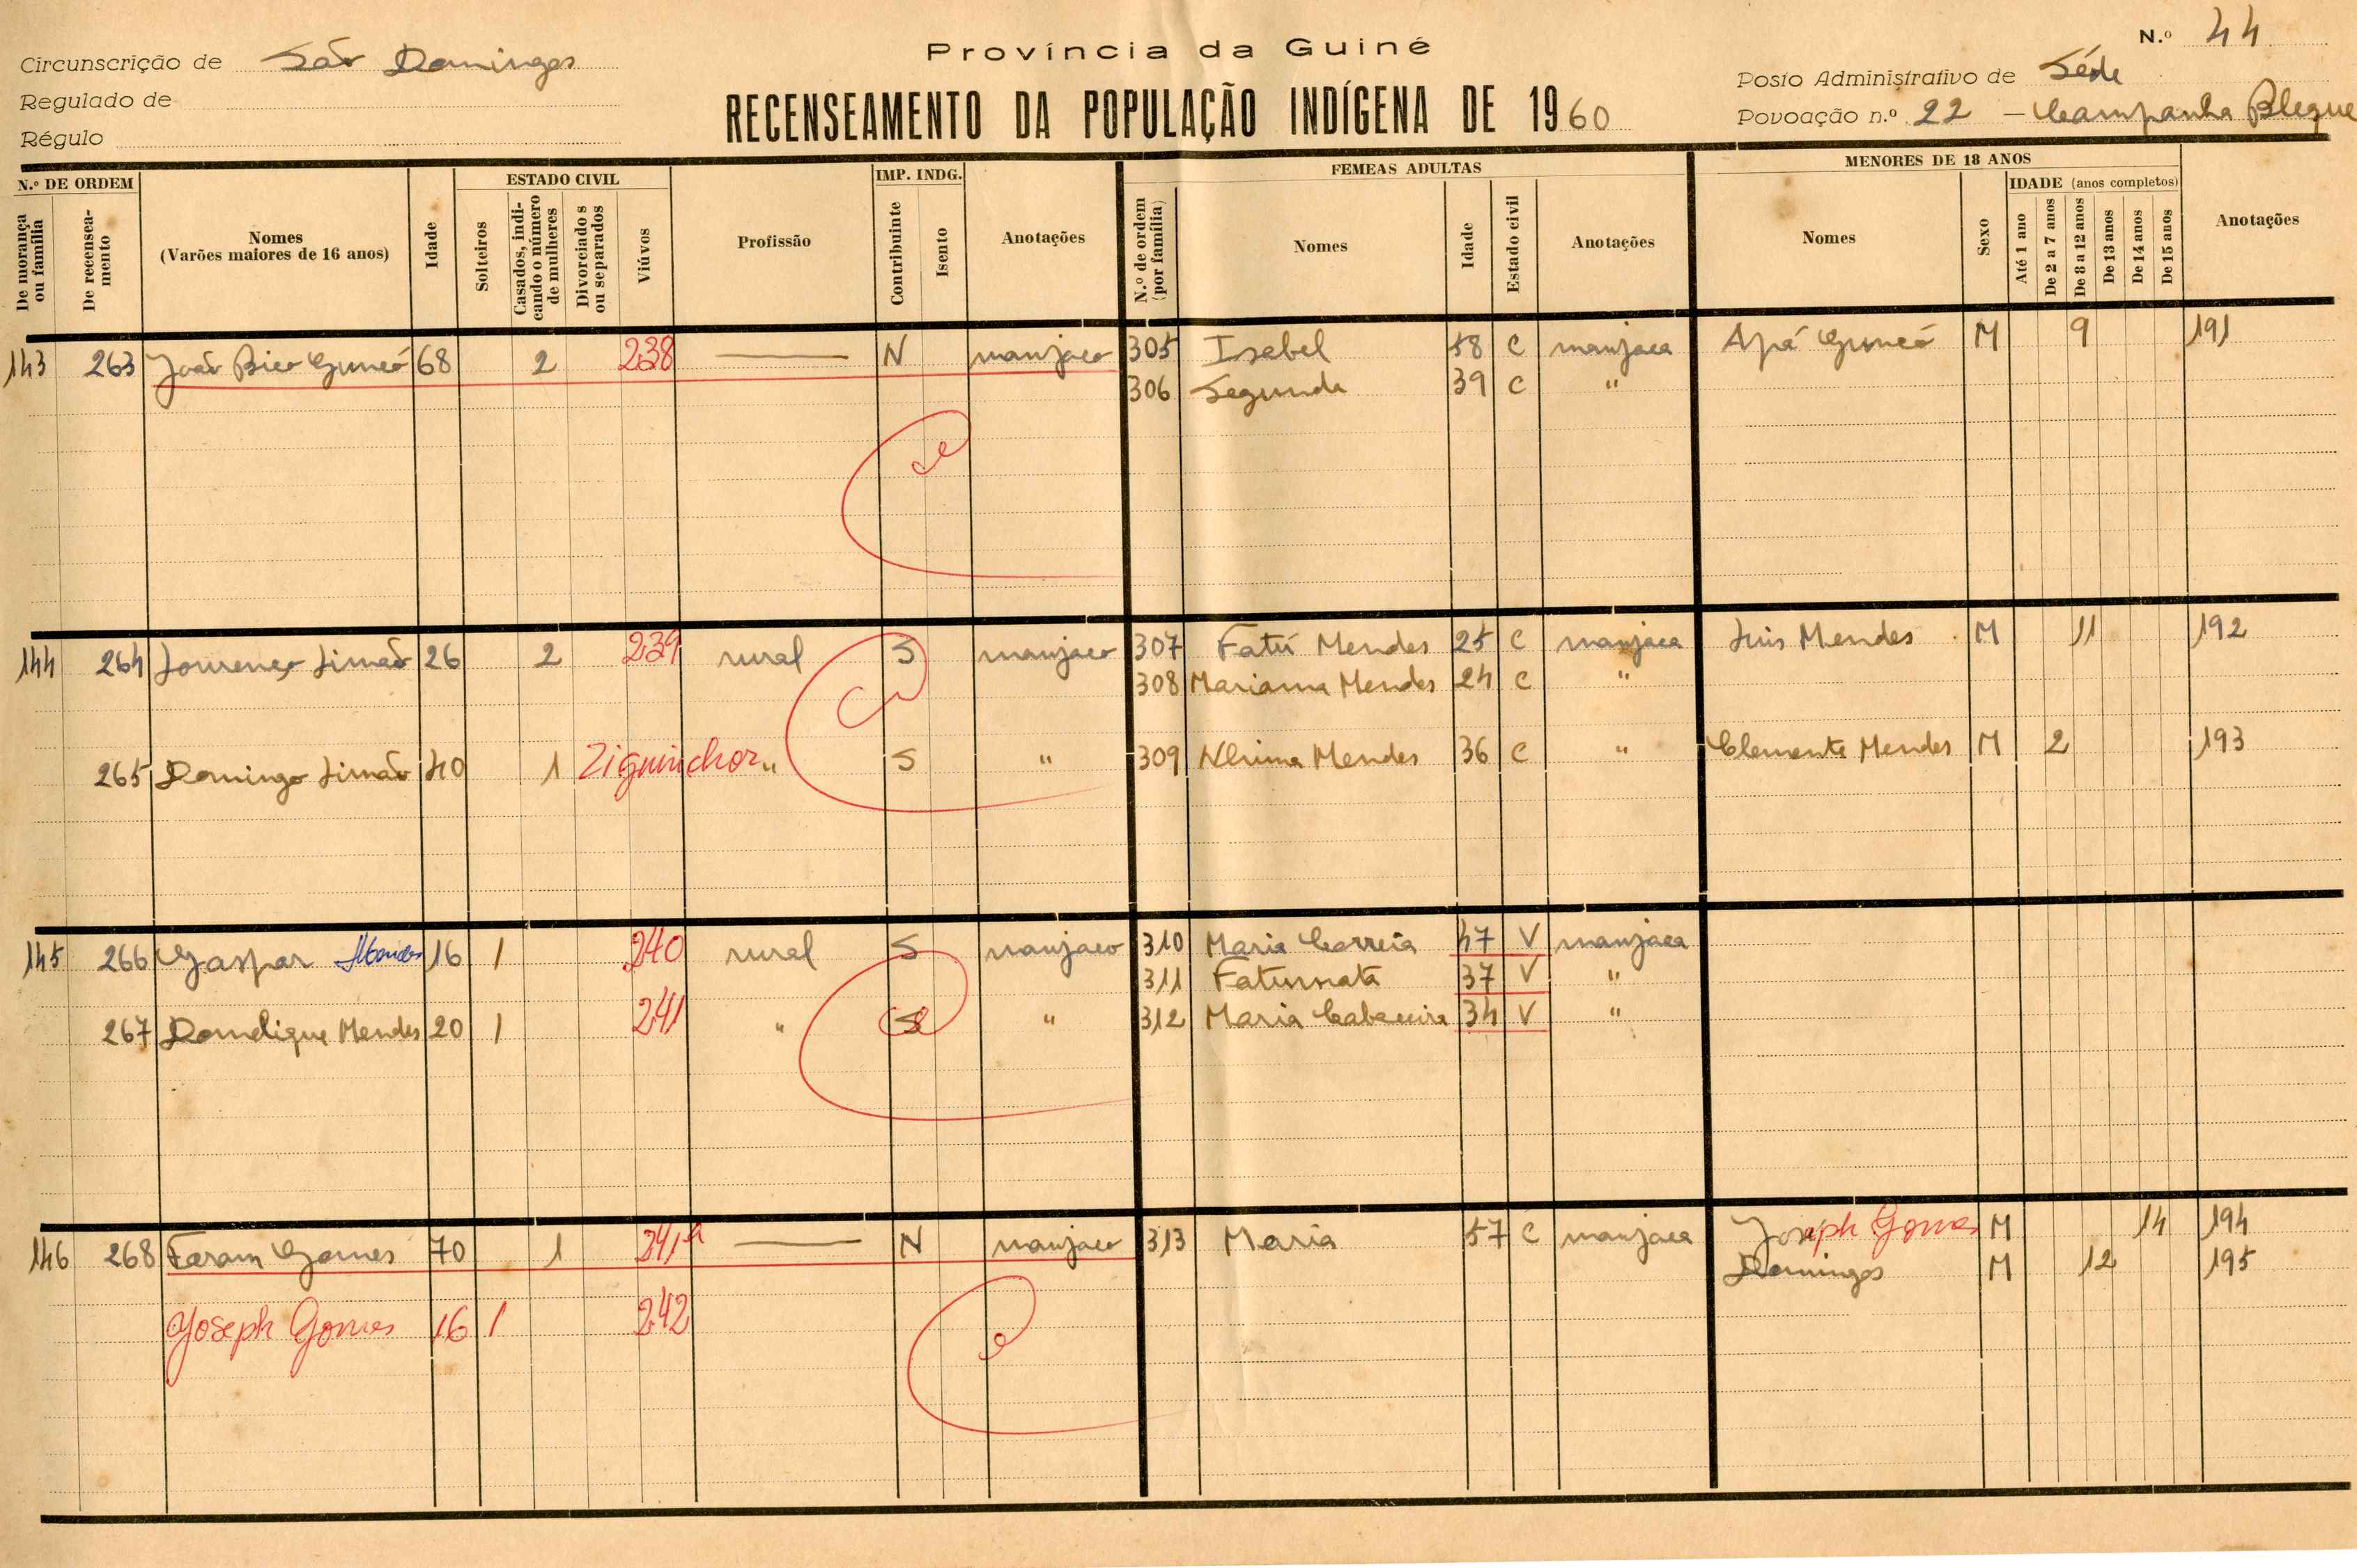 Província da Guiné
N.º 44
Circunscrição de São Domingos
Regulado de
Régulo
RECENSEAMENTO DA POPULAÇÃO INDÍGENA DE 1960
Posto Administrativo de Séde
Povoação n.º 22 – Campanha Blegue
N.º DE ORDEM
De morança ou família
De recenseamento
Nomes
(Varões maiores de 16 anos)
Idade
ESTADO CIVIL
Solteiros
Casados, indicando o número de mulheres
Divorciados ou separados
Viúvos
Profissão
IMP. INDG.
Contribuinte
Isento
Anotações
FEMEAS ADULTAS
N.º de ordem (por família)
Nomes
Idade
Estado civil
Anotações
MENORES DE 18 ANOS
Nomes
Sexo
IDADE (anos completos)
Até 1 ano
De 2 a 7 anos
De 8 a 12 anos
De 13 anos
De 14 anos
De 15 anos
Anotações
143 263 João Bico Guncó 68 2 238 — N manjaco 305 Isabel 58 C manjaca Apá Guncó M 9 191
306 Segunda 39 C "
144 264 Lourenço Simão 26 2 239 rural S manjaco 307 Fatú Mendes 25 C manjaca Luis Mendes M 11 192
308 Mariama Mendes 24 C "
265 Domingo Simão 40 1 Ziguinchor " S " 309 Mendes 36 C " Clemente Mendes M 2 193
145 266 Gaspar Mendes 16 1 240 rural S manjaco 310 Maria Correia 47 V manjaca
311 Fatumata 37 V "
267 Domelique Mendes 20 1 241 " S " 312 Maria Cabaceira 34 V "
146 268 Faram Gomes 70 1 241A — N manjaco 313 Maria 57 C manjaca Joseph Gomes M 14 194
Domingos M 12 195
Joseph Gomes 16 1 242